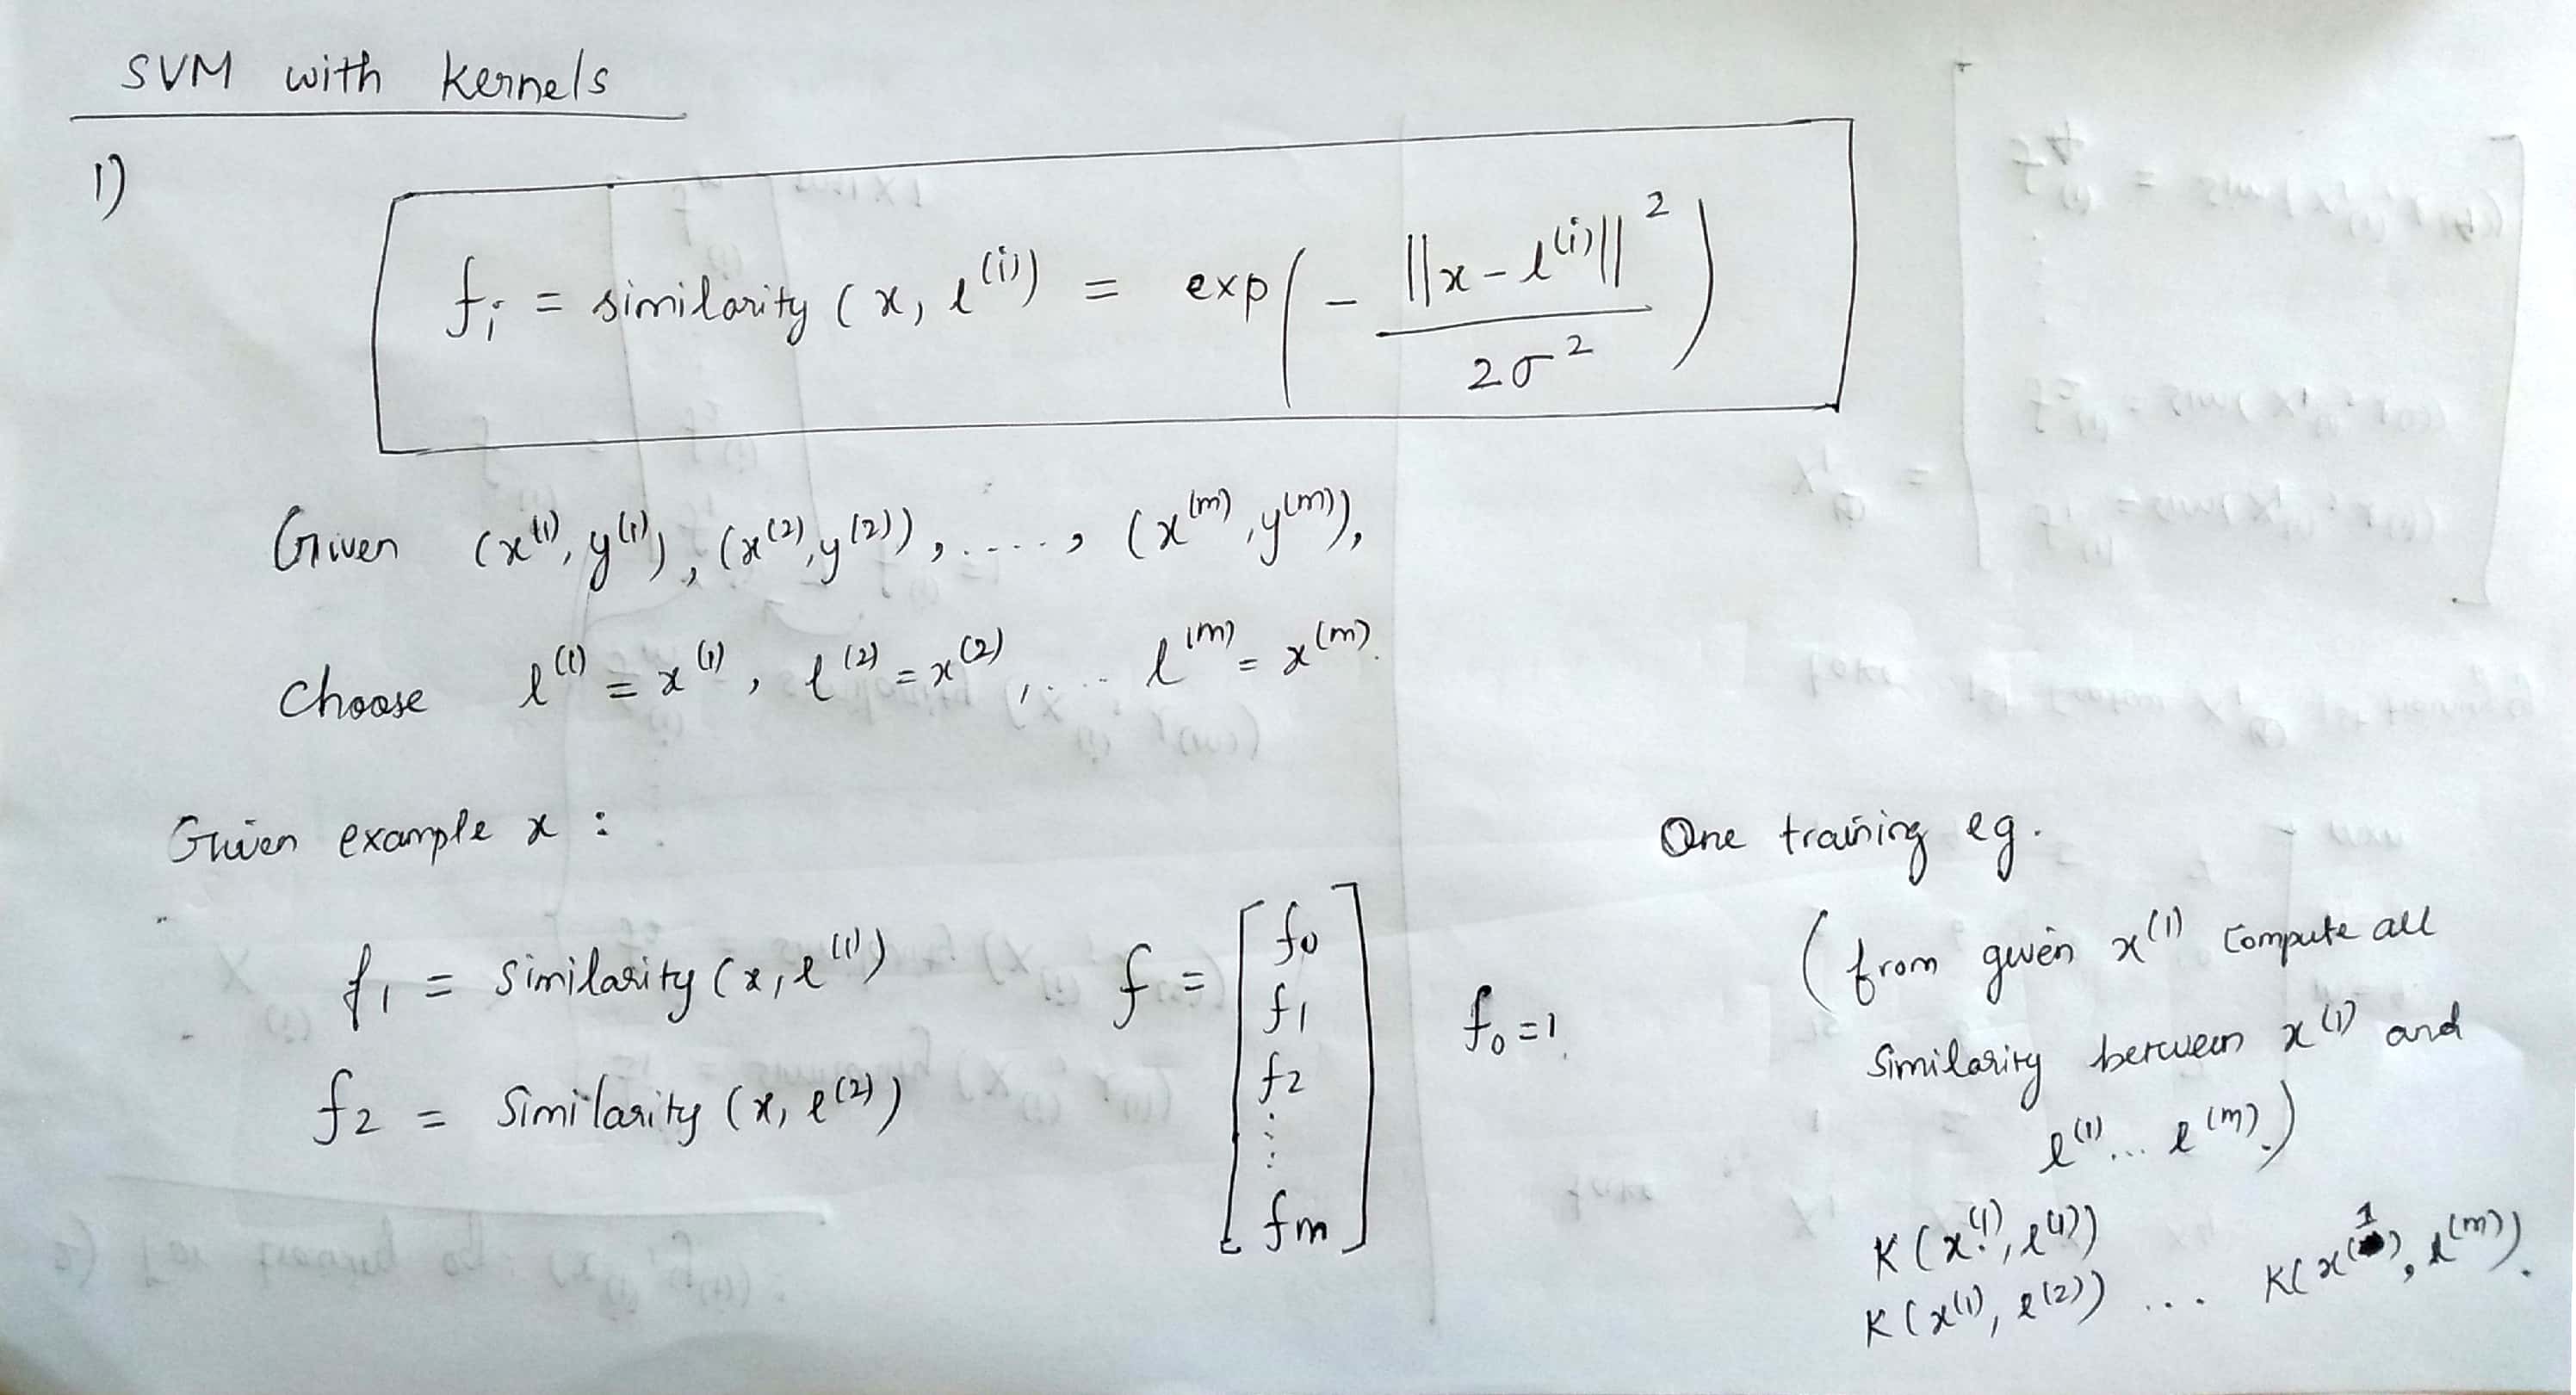 SVM with kernels
1)
f_i = similarity (x, l^(i)) = exp( - ||x - l^(i)||^2 / 2σ^2 )
Given (x^(1), y^(1)), (x^(2), y^(2)), ....., (x^(m), y^(m)),
Choose l^(1) = x^(1), l^(2) = x^(2), .... l^(m) = x^(m).
Given example x :
f_1 = Similarity (x, l^(1))
f_2 = Similarity (x, l^(2))
f = [ f_0
f_1
f_2
⋮
f_m ]
f_0 = 1.
One training eg.
( from given x^(1) compute all
Similarity between x^(1) and
l^(1) ... l^(m).)
K (x^(1), l^(1))
K (x^(1), l^(2)) ... K( x^(1), l^(m)).